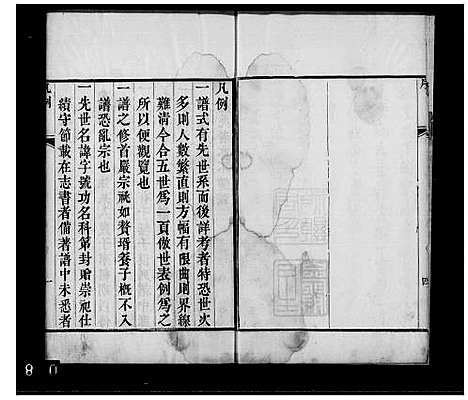 凡例
一譜式有先世系而後詳考者特恐世次
多則人數繁直則方幅有限曲則界線
難清今合五世為一頁倣世表例為之
所以便觀覽也
一譜之修首嚴宗祧如贅壻養子概不入
譜恐亂宗也
一先世名諱字號功名科第封贈崇祀仕
績守節載在志書者備著譜中未悉者
凡例
一
四
8 0